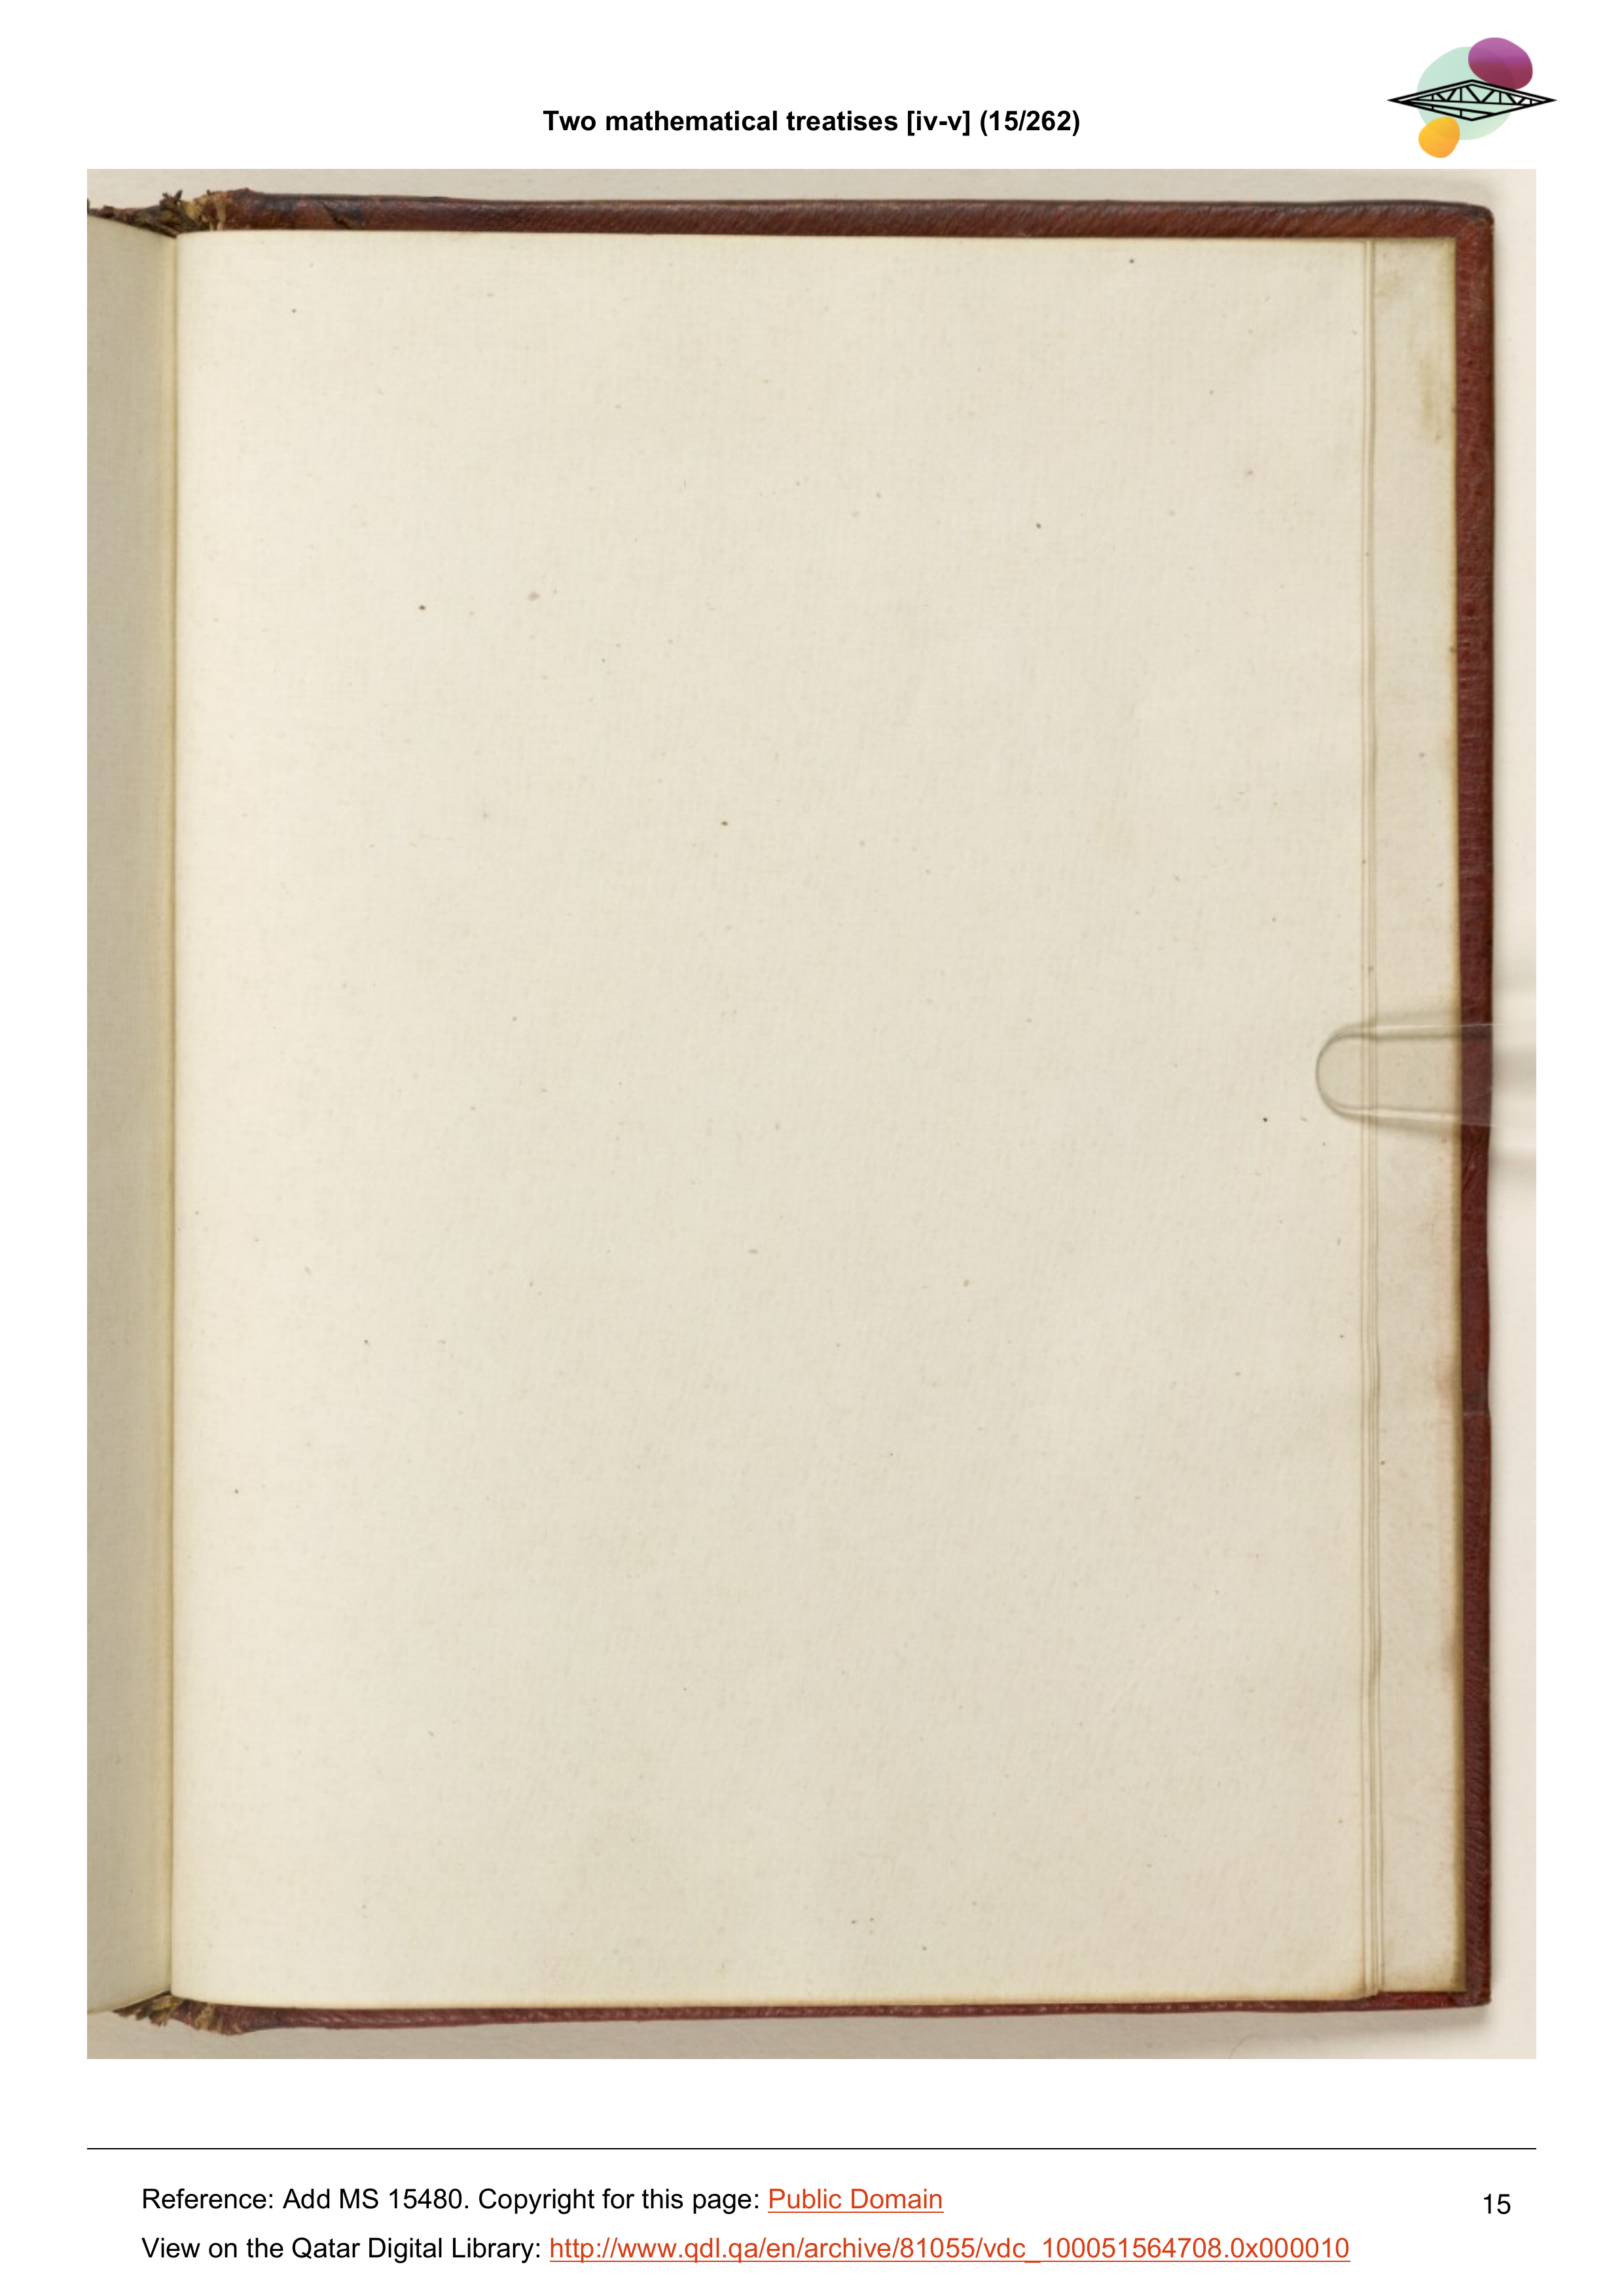 Two mathematical treatises [iv-v] (15/262)
Reference: Add MS 15480. Copyright for this page: Public Domain
15
View on the Qatar Digital Library: http://www.qdl.qa/en/archive/81055/vdc_100051564708.0x000010